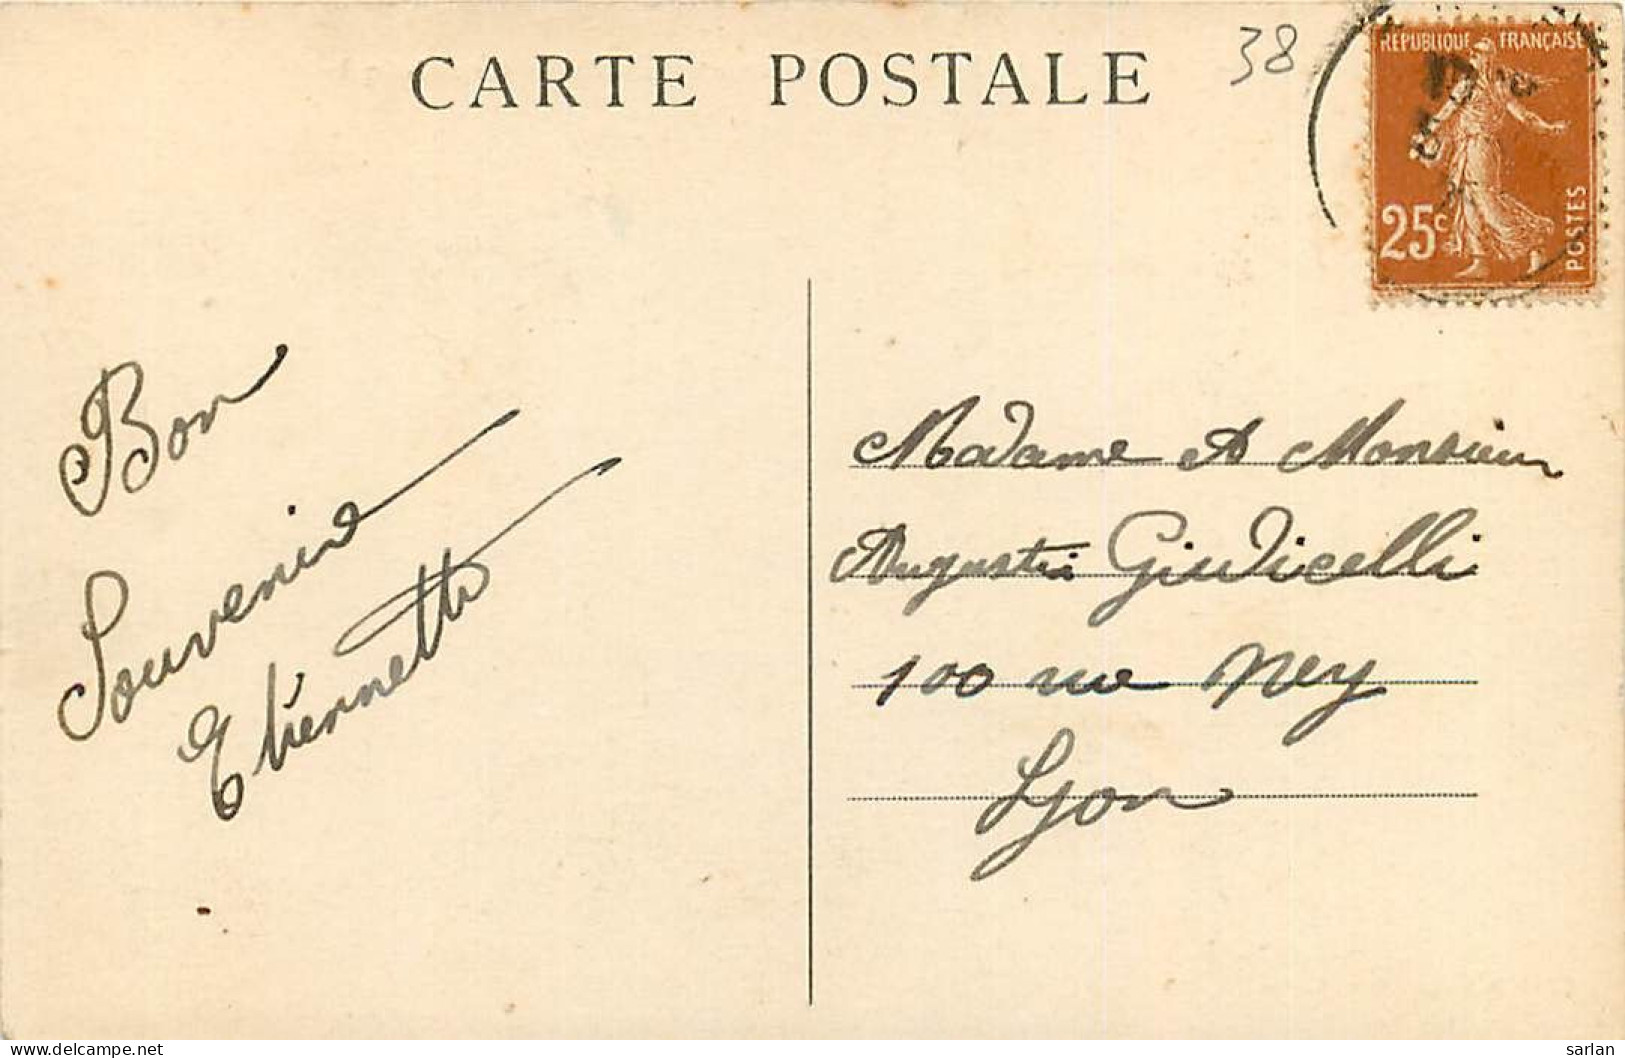 CARTE POSTALE
38
REPUBLIQUE FRANÇAISE
25c
POSTES
Bon
Souvenir
Etiennette
Madame et Monsieur
Augustin Giudicelli
100 rue Ney
Lyon
delcampe.net
sarlan